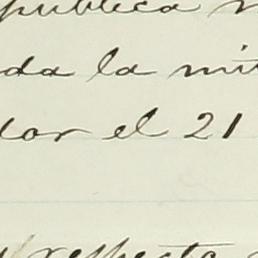 pública
da la mi
dor el 21
respecto